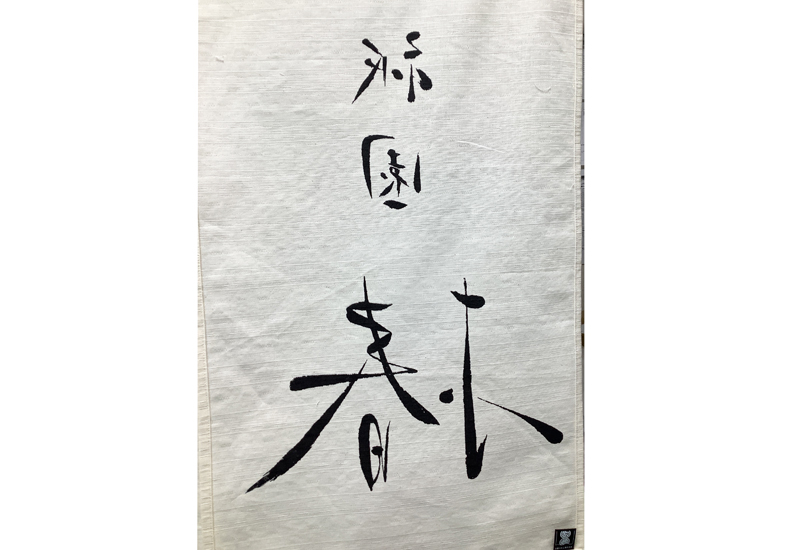 祇園 椿